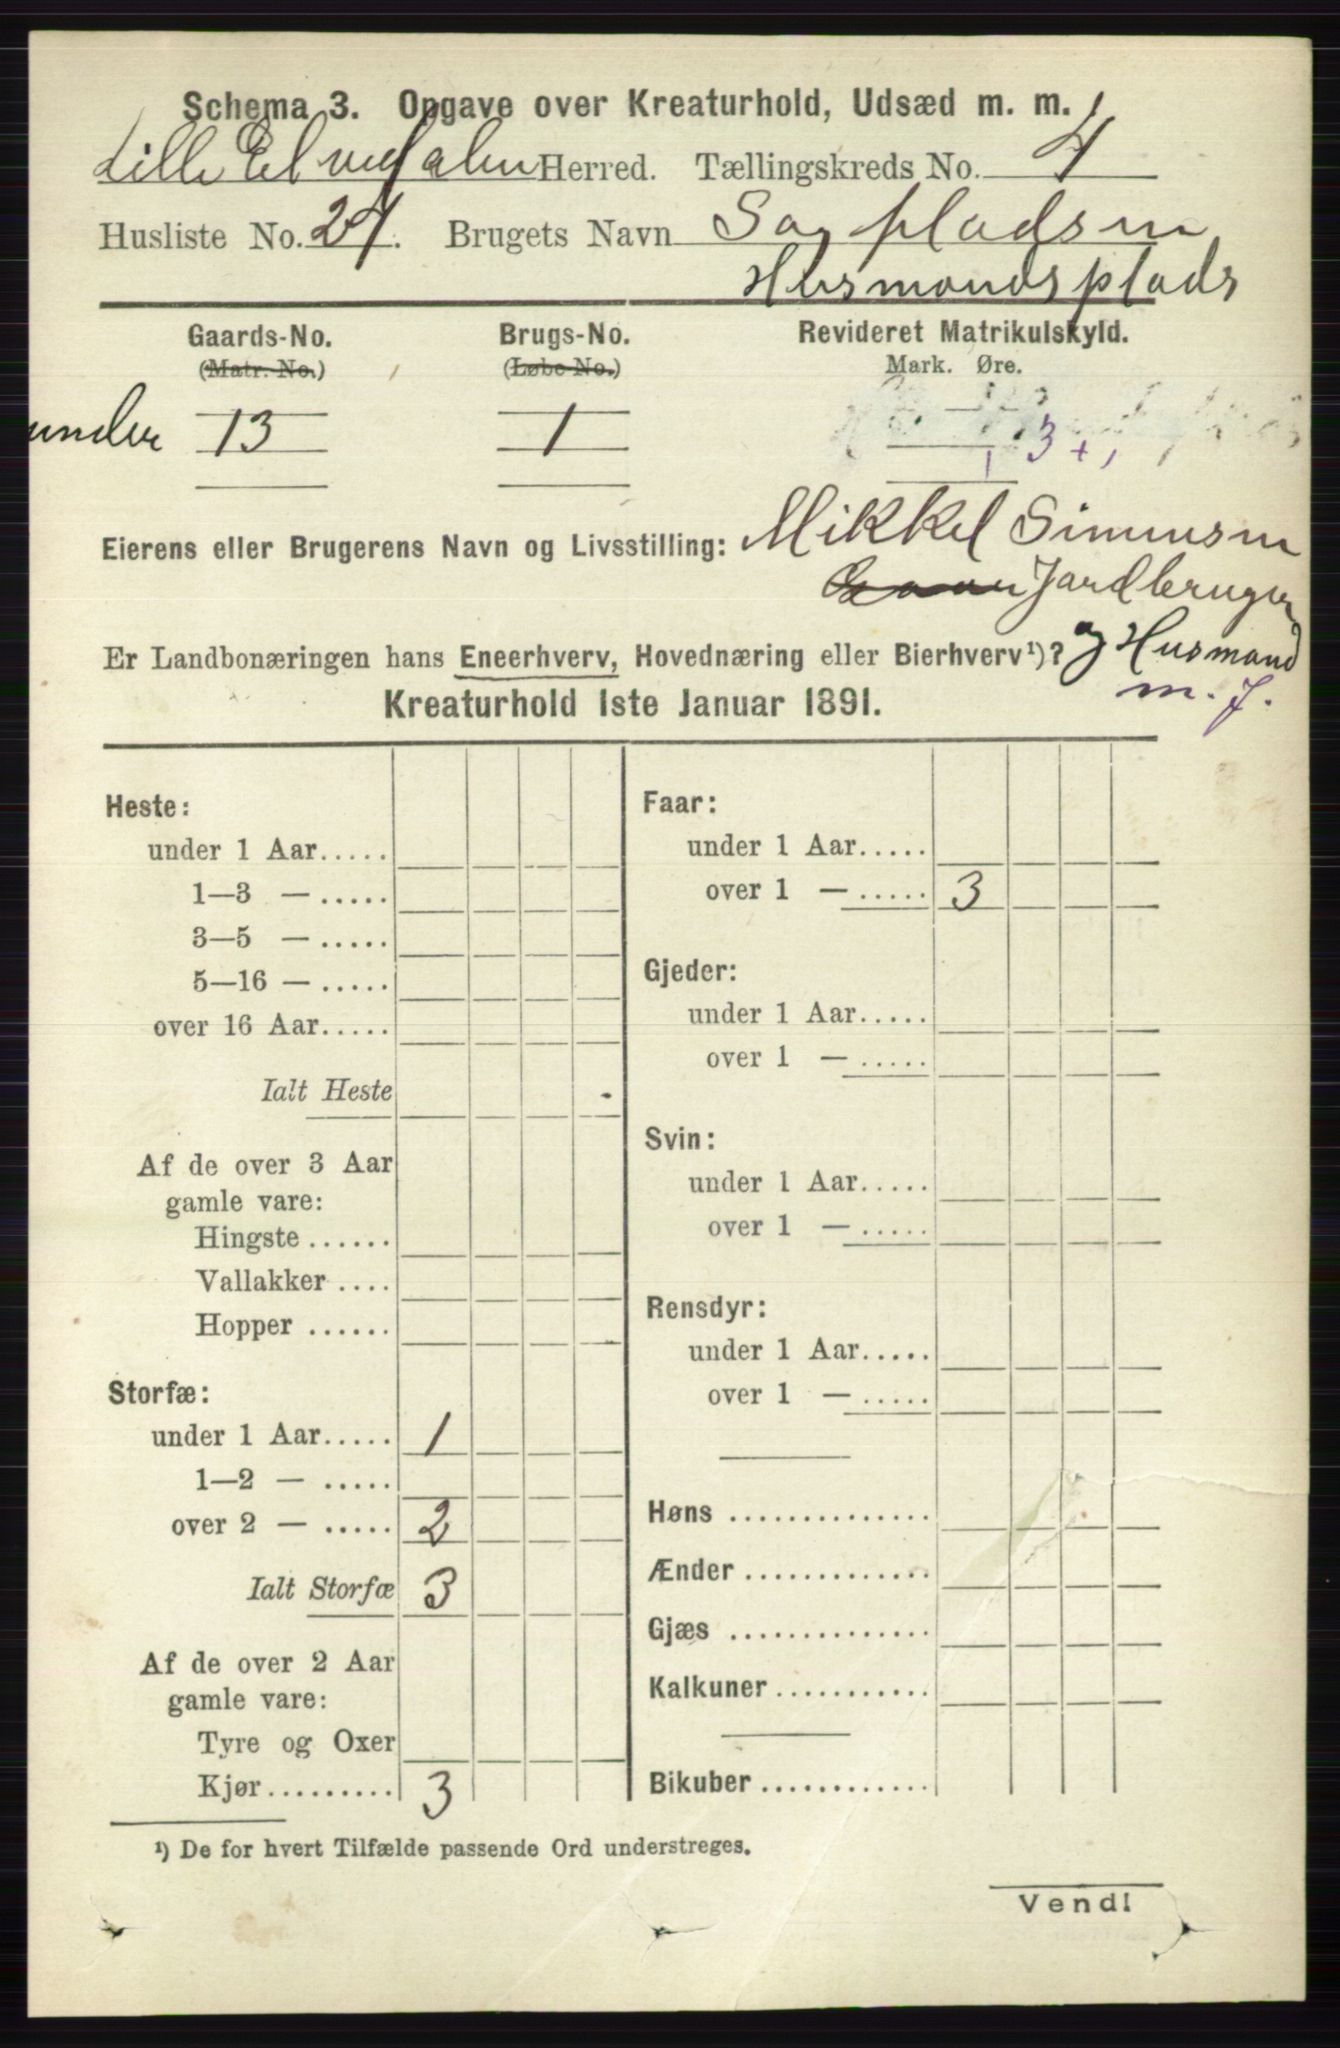 Schema 3. Opgave over Kreaturhold, Udsæd m. m.
Lille Elvedalen Herred. Tællingskreds No. 4
Husliste No. 24. Brugets Navn Sagpladsen
Husmandsplads
Gaards-No. Brugs-No. Revideret Matrikulskyld.
(Matr. No.) (Løbe-No.) Mark. Øre.
under 13 1
3
Eierens eller Brugerens Navn og Livsstilling: Mikkel Simensen
Jordbruger
Er Landbonæringen hans Eneerhverv, Hovednæring eller Bierhverv¹)? og Husmand
m. J.
Kreaturhold 1ste Januar 1891.
Heste:
under 1 Aar.....
1—3 — .....
3—5 — .....
5—16 — .....
over 16 Aar.....
Ialt Heste
Af de over 3 Aar
gamle vare:
Hingste ......
Vallakker ....
Hopper ......
Storfæ:
under 1 Aar..... 1
1—2 — .....
over 2 — ..... 2
Ialt Storfæ 3
Af de over 2 Aar
gamle vare:
Tyre og Oxer
Kjør......... 3
Faar:
under 1 Aar.....
over 1 — ..... 3
Gjeder:
under 1 Aar.....
over 1 — .....
Svin:
under 1 Aar.....
over 1 — .....
Rensdyr:
under 1 Aar.....
over 1 — .....
Høns ..............
Ænder .............
Gjæs ..............
Kalkuner ...........
Bikuber ............
¹) De for hvert Tilfælde passende Ord understreges.
Vend!